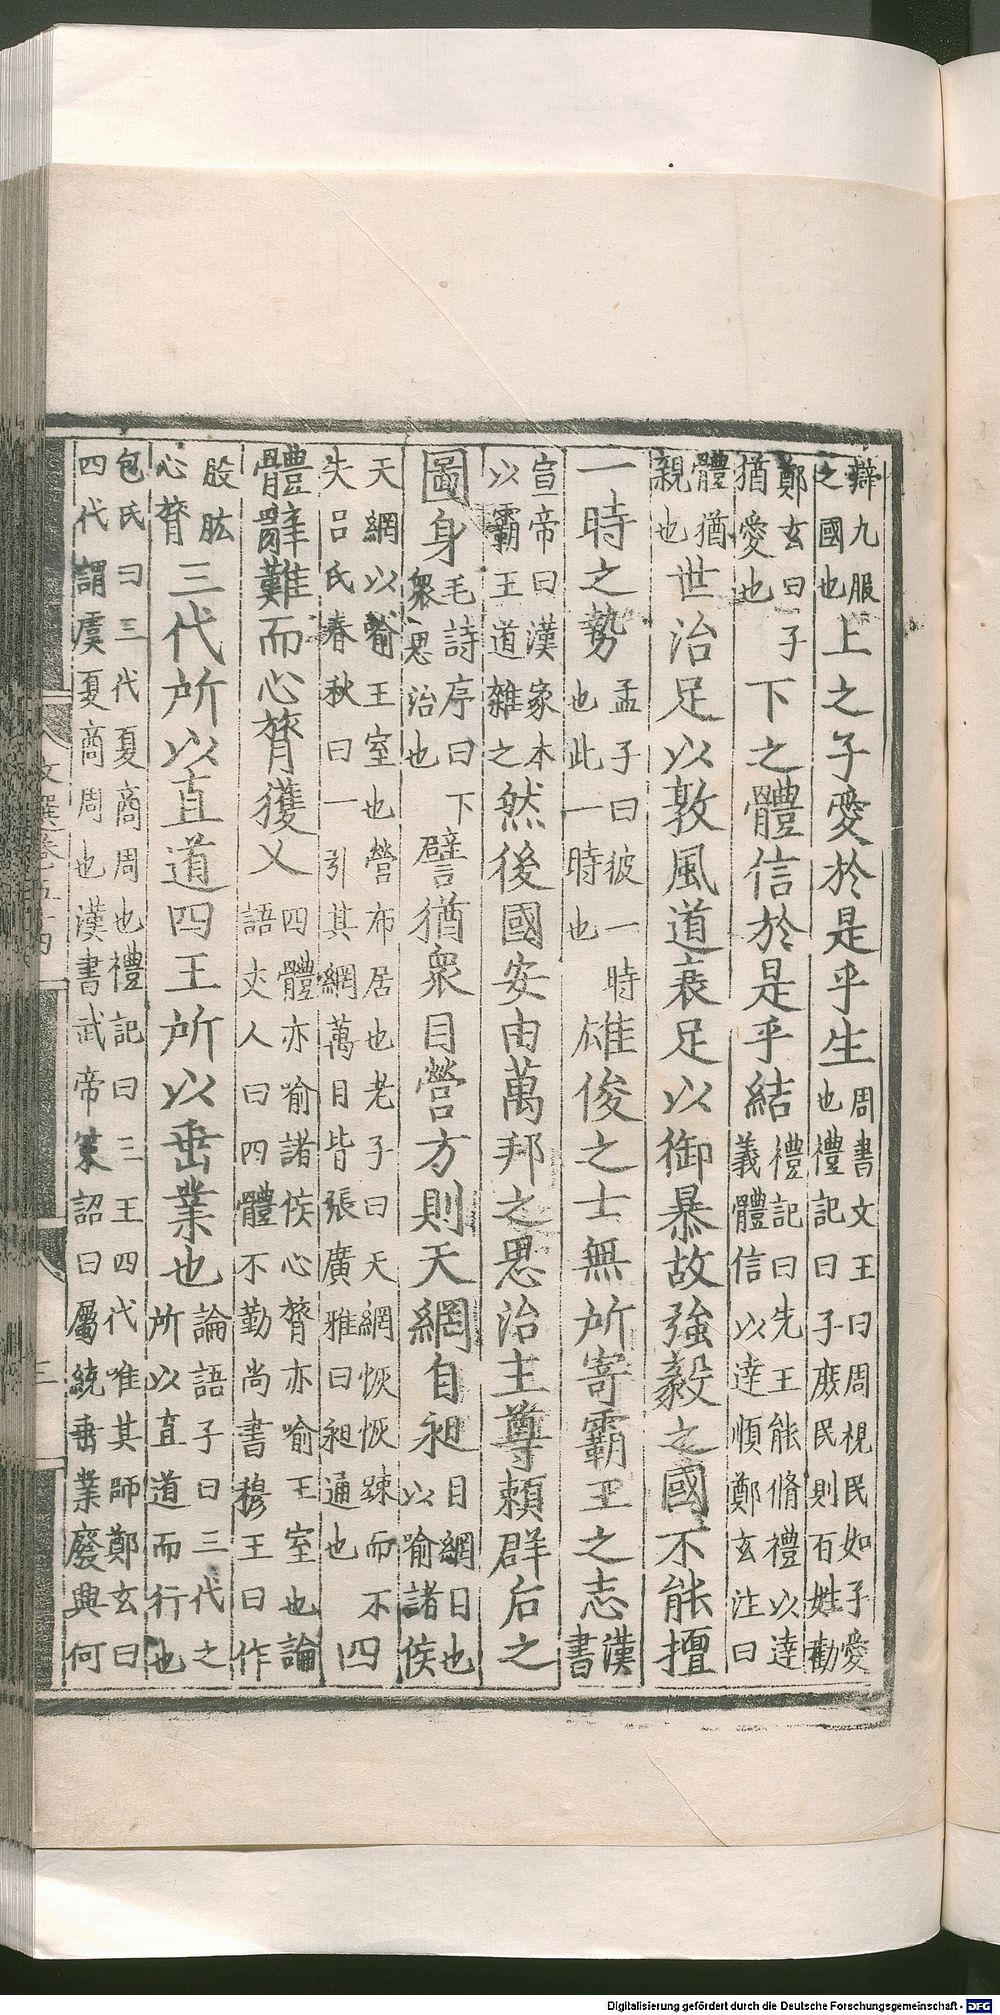 辯九服
之國也
上之子愛於是乎生
周書文王曰周視民如子愛
也禮記曰子庶民則百姓勸
鄭玄曰子
猶愛也
下之體信於是乎結
禮記曰先王能脩禮以達
義體信以達順鄭玄注曰
體猶
親也
世治足以敦風道衰足以御暴故強毅之國不能擅
一時之勢
孟子曰彼一時
也此一時也
雄俊之士無所寄霸王之志
漢
書
宣帝曰漢家本
以霸王道雜之
然後國安由萬邦之思治主尊賴群后之
圖身
毛詩序曰下
衆思治也
譬猶衆目營方則天網自昶
目網日也
以喻諸侯
天網以喻王室也營布居也老子曰天網恢恢踈而不
失呂氏春秋曰一引其網萬目皆張廣雅曰昶通也
四
體辭難而心膂獲乂
四體亦喻諸侯心膂亦喻王室也論
語丈人曰四體不勤尚書穆王曰作
股肱
心膂
三代所以直道四王所以垂業也
論語子曰三代之
所以直道而行也
包氏曰三代夏商周也禮記曰三王四代唯其師鄭玄曰
四代謂虞夏商周也漢書武帝策詔曰屬統垂業廢興何
文選卷五十四
三
Digitalisierung gefördert durch die Deutsche Forschungsgemeinschaft - DFG